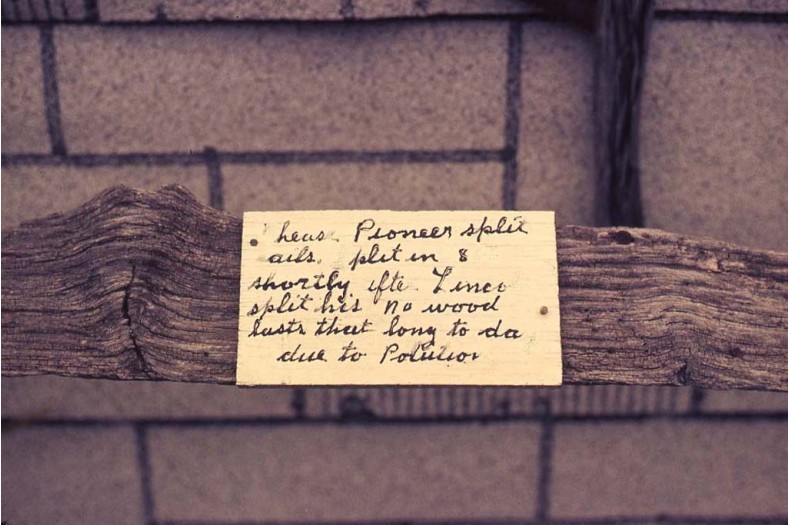 heas Pioneer split
ails. plit in 8
shortly fte Linco
split his no wood
lasts that long to da
due to Polution